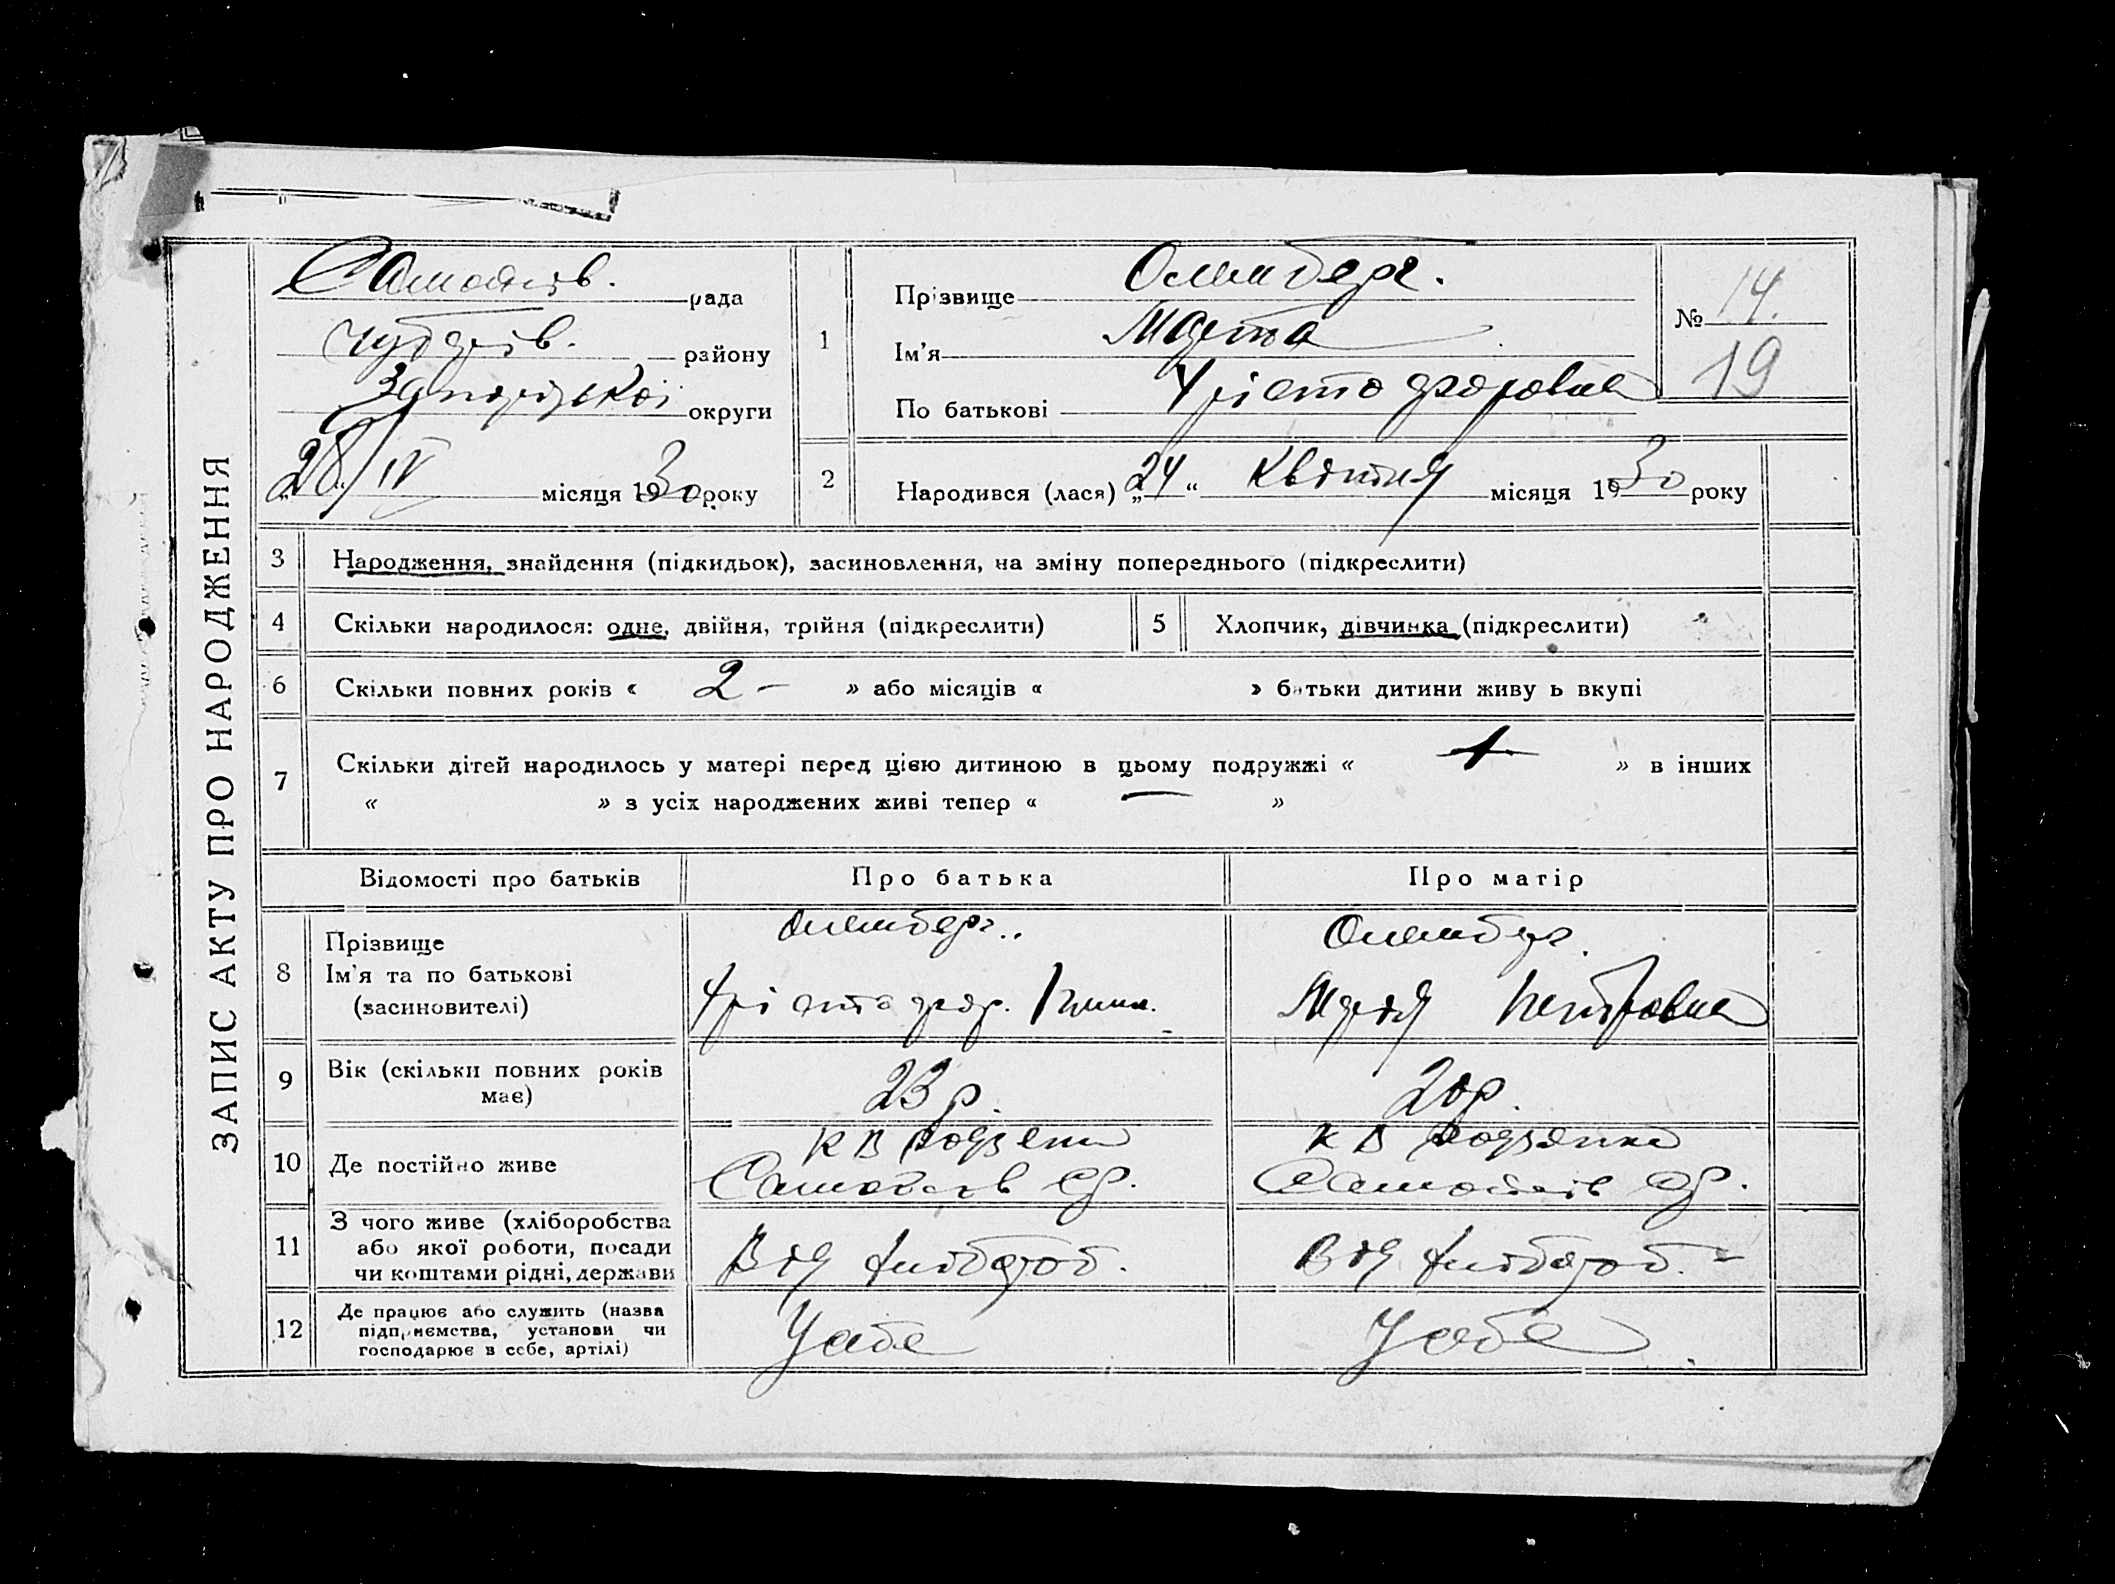 ЗАПИС АКТУ ПРО НАРОДЖЕННЯ
рада
Чубарів. району
Запорізької округи
28/IV місяця 1930 року
1
Прізвище Олемберг.
Ім'я Марта
По батькові
№ 14.
19
2
Народився (лася) „24“ Квітня місяця 1930 року
3 Народження, знайдення (підкидьок), засиновлення, на зміну попереднього (підкреслити)
4 Скільки народилося: одне, двійня, трійня (підкреслити)
5 Хлопчик, дівчинка (підкреслити)
6 Скільки повних років « 2 – » або місяців « » батьки дитини живуть вкупі
7 Скільки дітей народилось у матері перед цією дитиною в цьому подружжі « 1 » в інших
« » з усіх народжених живі тепер « — »
Відомості про батьків Про батька Про матір
8 Прізвище
Ім'я та по батькові
(засиновителі)
Олемберг..
Олемберг.
Марія Петровна
9 Вік (скільки повних років має)
23 р.
20 р.
10 Де постійно живе
11 З чого живе (хліборобства
або якої роботи, посади
чи коштами рідні, держави
Від хлібороб.
Від хлібороб. –
12 Де працює або служить (назва
підприємства, установи чи
господарює в себе, артілі)
У себе
У себе